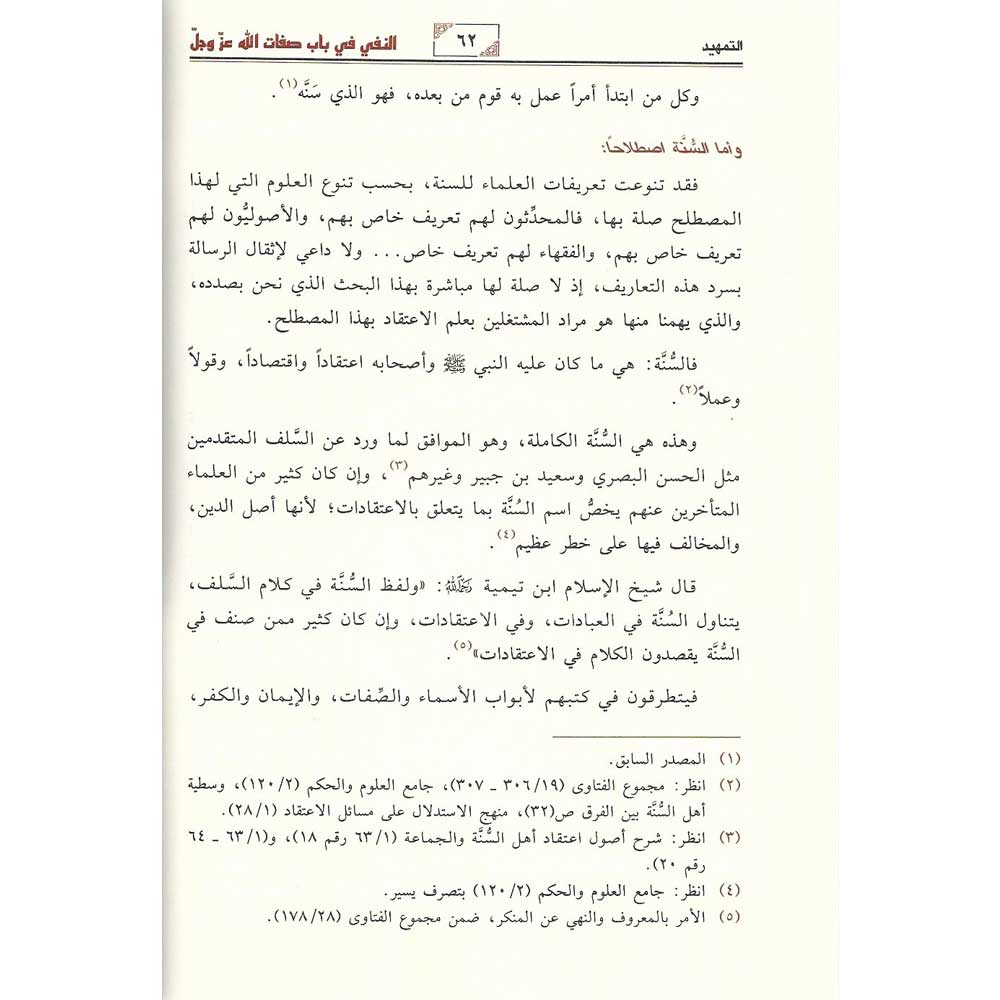 التمهيد ٦٢ النفي في باب صفات الله عزّ وجلّ
وكل من ابتدأ أمراً عمل به قوم من بعده، فهو الذي سَنَّه(١).
وأما السُّنَّة اصطلاحاً:
فقد تنوعت تعريفات العلماء للسنة، بحسب تنوع العلوم التي لهذا
المصطلح صلة بها، فالمحدِّثون لهم تعريف خاص بهم، والأصوليُّون لهم
تعريف خاص بهم، والفقهاء لهم تعريف خاص... ولا داعي لإثقال الرسالة
بسرد هذه التعاريف، إذ لا صلة لها مباشرة بهذا البحث الذي نحن بصدده،
والذي يهمنا منها هو مراد المشتغلين بعلم الاعتقاد بهذا المصطلح.
فالسُّنَّة: هي ما كان عليه النبي ﷺ وأصحابه اعتقاداً واقتصاداً، وقولاً
وعملاً(٢).
وهذه هي السُّنَّة الكاملة، وهو الموافق لما ورد عن السَّلف المتقدمين
مثل الحسن البصري وسعيد بن جبير وغيرهم(٣)، وإن كان كثير من العلماء
المتأخرين عنهم يخصُّ اسم السُنَّة بما يتعلق بالاعتقادات؛ لأنها أصل الدين،
والمخالف فيها على خطر عظيم(٤).
قال شيخ الإسلام ابن تيمية رحمه الله: «ولفظ السُّنَّة في كلام السَّلف،
يتناول السُنَّة في العبادات، وفي الاعتقادات، وإن كان كثير ممن صنف في
السُّنَّة يقصدون الكلام في الاعتقادات»(٥).
فيتطرقون في كتبهم لأبواب الأسماء والصِّفات، والإيمان والكفر،
(١) المصدر السابق.
(٢) انظر: مجموع الفتاوى (٣٠٦/١٩ ـ ٣٠٧)، جامع العلوم والحكم (١٢٠/٢)، وسطية
أهل السُّنَّة بين الفرق ص(٣٢)، منهج الاستدلال على مسائل الاعتقاد (٢٨/١).
(٣) انظر: شرح أصول اعتقاد أهل السُّنَّة والجماعة (٦٣/١ رقم ١٨)، و(٦٣/١ ـ ٦٤
رقم ٢٠).
(٤) انظر: جامع العلوم والحكم (١٢٠/٢) بتصرف يسير.
(٥) الأمر بالمعروف والنهي عن المنكر، ضمن مجموع الفتاوى (١٧٨/٢٨).